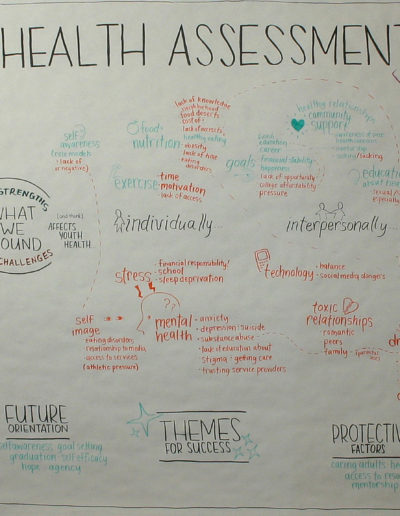 HEALTH ASSESSMENT
lack of knowledge
neighborhood
food deserts
cost of
lack of access to
healthy eating
obesity
lack of time
eating disorders
food
nutrition
exercise
time
motivation
lack of access
self
awareness
role models
(lack of
or negative)
goals
good
education
career
financial stability
happiness
lack of opportunity
college affordability
pressure
healthy relationships
community
support
education
STRENGTHS
WHAT
WE
FOUND
CHALLENGES
(and think)
AFFECTS
YOUTH
HEALTH
individually...
interpersonally...
stress
financial responsibility
school
sleep deprivation
technology
balance
social media dangers
self
image
eating disorder,
relationship to media,
access to services
(athletic pressure)
mental
health
anxiety
depression: suicide
substance abuse
lack of education about
stigma: getting care
trusting service providers
toxic
relationships
romantic
peers
family
FUTURE
ORIENTATION
self awareness goal setting
graduation self efficacy
hope agency
THEMES
FOR SUCCESS
PROTECTIVE
FACTORS
caring adults
access to
mentorship